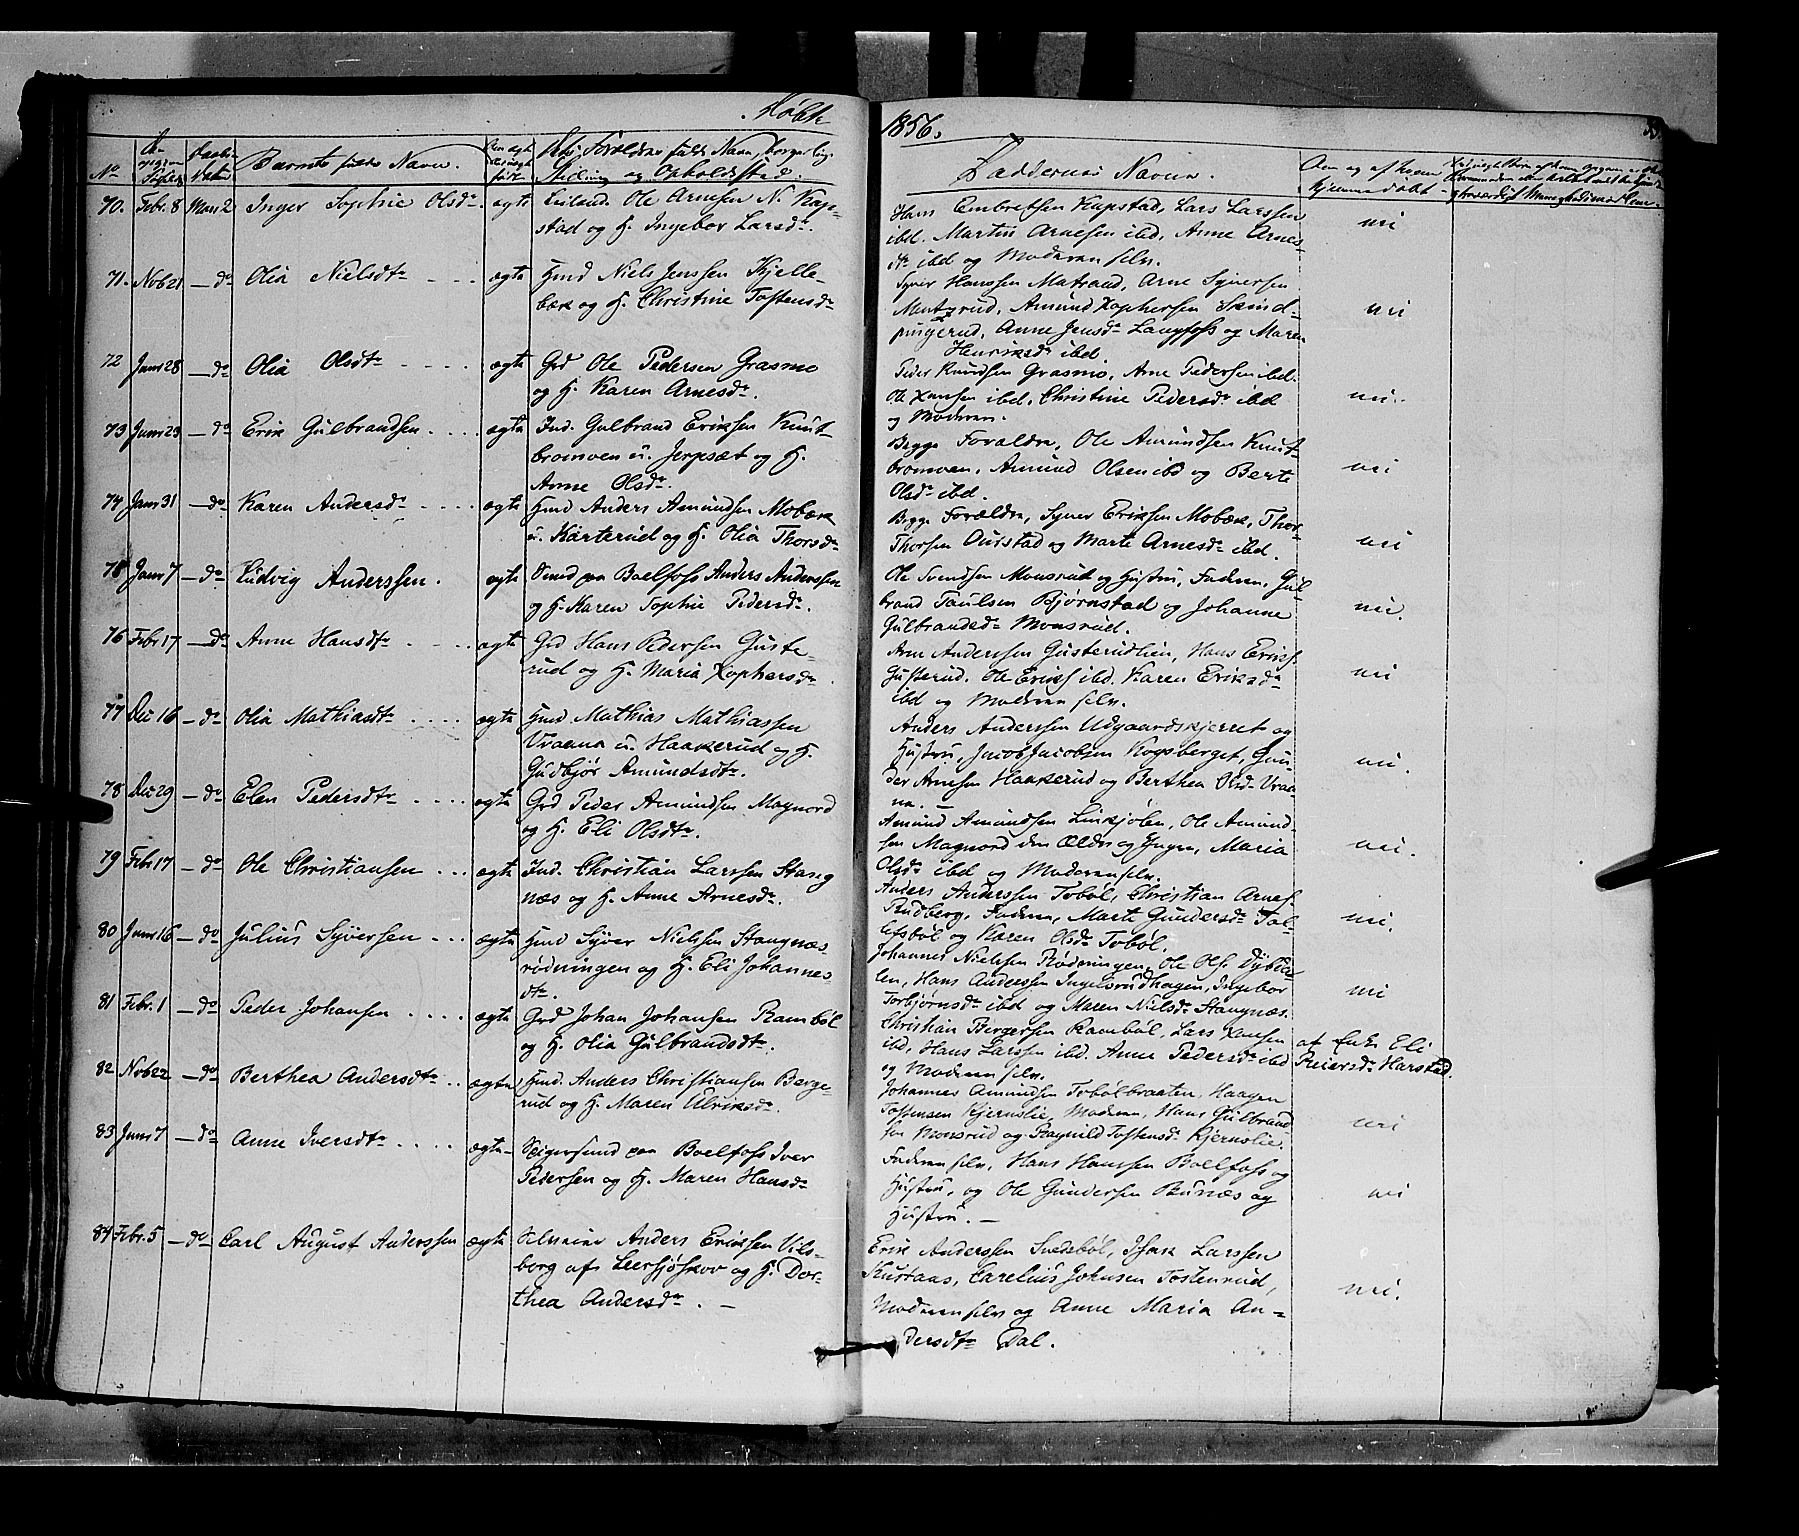 Døbte
1856.
No
Barnets fulde Navn.
Forældres fulde Navn, borgerlige
Stilling og Opholdssted.
Faddernes Navne.
70. Febr. 8 Mars 2 Inger Sophie Olsdtr ægte Leilend. Ole Arnesen N. Kap-
stad og H. Ingebor Larsdr.
Hans Embretsen Kapstad, Lars Larssen
ibd. Martin Arnesen ibd, Anne Arnes-
dtr ibd og Moderen selv.
nei
71. Nob 21 — do Olia Nielsdtr ægte Hmd Niels Jenssen Kjelle-
bæk og H. Christine Tostensdr
Syver Hanssen Matrand, Arne Syversen
Mentzrud, Amund Xophersen Skind-
pungerud, Anne Jensdr Langfoss og Maren
Henriksdr ibd.
nei
72 Janr 28 — do Olia Olsdtr ægte Grd Ole Pedersen Grasmo
og H. Karen Arnesdr.
Peder Knudsen Grasmo, Arne Pedersen ibd.
Ole Hansen ibd, Christine Pedersdr ibd
og Moderen.
nei.
73 Janr 23 — do Erik Gulbrandsen ægte Ind. Gulbrand Eriksen Knut-
bromoen u. Jerpset og H.
Anne Olsdr.
Begge Forældre, Ole Amundsen Knut-
bromoen, Amund Olsen ibd og Berte
Olsdr ibd.
nei
74 Janr 31 — do Karen Andersdr ægte Hmd Anders Amundsen Mobæk
u. Karterud og H. Olia Thorsdr
Begge Forældre, Syver Eriksen Mobæk, Thor
Thorsen Ourstad og Marte Arnesdr ibd.
nei
75 Janr 7 — do Ludvig Anderssen. ægte Smed paa Boelfoss Anders Anderssen
og H. Karen Sophie Pedersdr.
Ole Svendsen Monsrud og Hustru, Faderen, Gul-
brand Paulsen Bjørnstad og Johanne
Gulbrandsdr Monsrud.
nei.
76 Febr. 17 — do Anne Hansdtr ægte Grd Hans Pedersen Guste-
rud og H. Maria Xophersdr.
Arne Anderssen Gusterudlien, Hans Eriks.
Gusterud, Ole Eriks ibd. Karen Eriksdr
ibd og Moderen selv.
nei
77 Dec 16 — do Olia Mathiasdtr ægte Hmd. Mathias Mathiassen
Vraana u. Haakerud og H.
Gudbjør Amundsdtr.
Anders Anderssen Udgaardskjerret og
Hustru, Jacob Jacobsen Kogsberget, Gun-
der Arnesen Haakerud og Berthea Olsdr Vraa-
na. —
nei.
78 Dec 29 — do Elen Pedersdtr ægte Grd Peder Amundsen Magnord
og H. Eli Olsdtr.
Amund Amundsen Linkjølen, Ole Amund-
sen Magnord den Ældre og Yngre, Maria
Olsdr ibd og Moderen selv.
nei.
79 Febr 17 — do Ole Christiansen ægte Ind. Christian Larssen Stang
næs og H. Anne Arnesdr.
Anders Anderssen Tobøl, Christian Arnes.
Rudberg, Faderen, Marte Gundersdr Tol-
lefsbøl og Karen Olsdr Tobøl.
nei.
80 Janr 16 — do Julius Syversen ægte Hmd Syver Nielsen Stangnæs
rødningen og H. Eli Johannes
dtr.
Johannes Nielsen Rødningen, Ole Ols. Dybda-
len, Hans Anderssen Ingelsrudhagen, Ingebor
Torbjørnsdr ibd og Maren Nielsdr Stangnæs.
nei
81 Febr. 1 — do Peder Johansen ægte Grd Johan Johansen Rambøl
og H. Olia Gulbrandsdtr.
Christian Bergersen Rambøl, Lars Hansen
ibd, Hans Larssen ibd. Anne Pedersdr ibd
og Moderen selv.
af Enke Eli
Reiersdr Harstad.
82 Nob 22 — do Berthea Andersdtr ægte Hmd. Anders Christiansen Berge-
rud og H. Maren Ulriksdr.
Johannes Amundsen Tobølbraaten, Haagen
Tostensen Kjernslie, Moderen, Hans Gulbrand
sen Monsrud og Ragnild Tostensdr Kjernslie.
nei
83 Janr 7 — do Anne Iversdtr ægte Spigersmed paa Boelfoss Iver
Pedersen og H. Maren Hansdr
Faderen selv, Hans Hanssen Boelfoss og
Hustru, og Ole Gundersen Bunæs og
Hustru. —
nei
84 Febr. 5 — do Carl August Anderssen ægte Anders Eriksen Vils-
borg af Leersjøskov og H. Dor-
thea Andersdr. —
Erik Anderssen Svedsbøl, Isak Larssen
Skustaas, Carelius Johnsen Tostenrud,
Moderen selv og Anne Maria An-
dersdtr Dal.
nei.